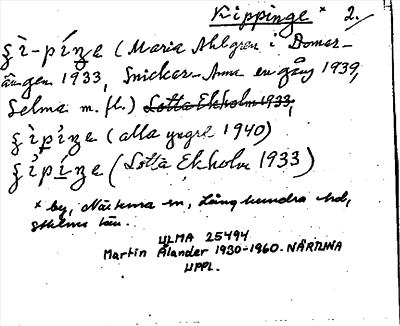 Kippinge * 2./
ʂì-píŋe (Maria Ahlgren i Domar-
ängen 1933, Snickar-Anna en gång 1939,
Selma m. fl.) Lotta Ekholm 1933,
ʂìpiŋe (alla yngre 1940)
ʂipíŋe (Lotta Ekholm 1933)
* by, Närtuna sn, Långhundra hd,
Sthlms län.
ULMA 25494
Martin Ålander 1930-1960. NÄRTUNA
UPPL.